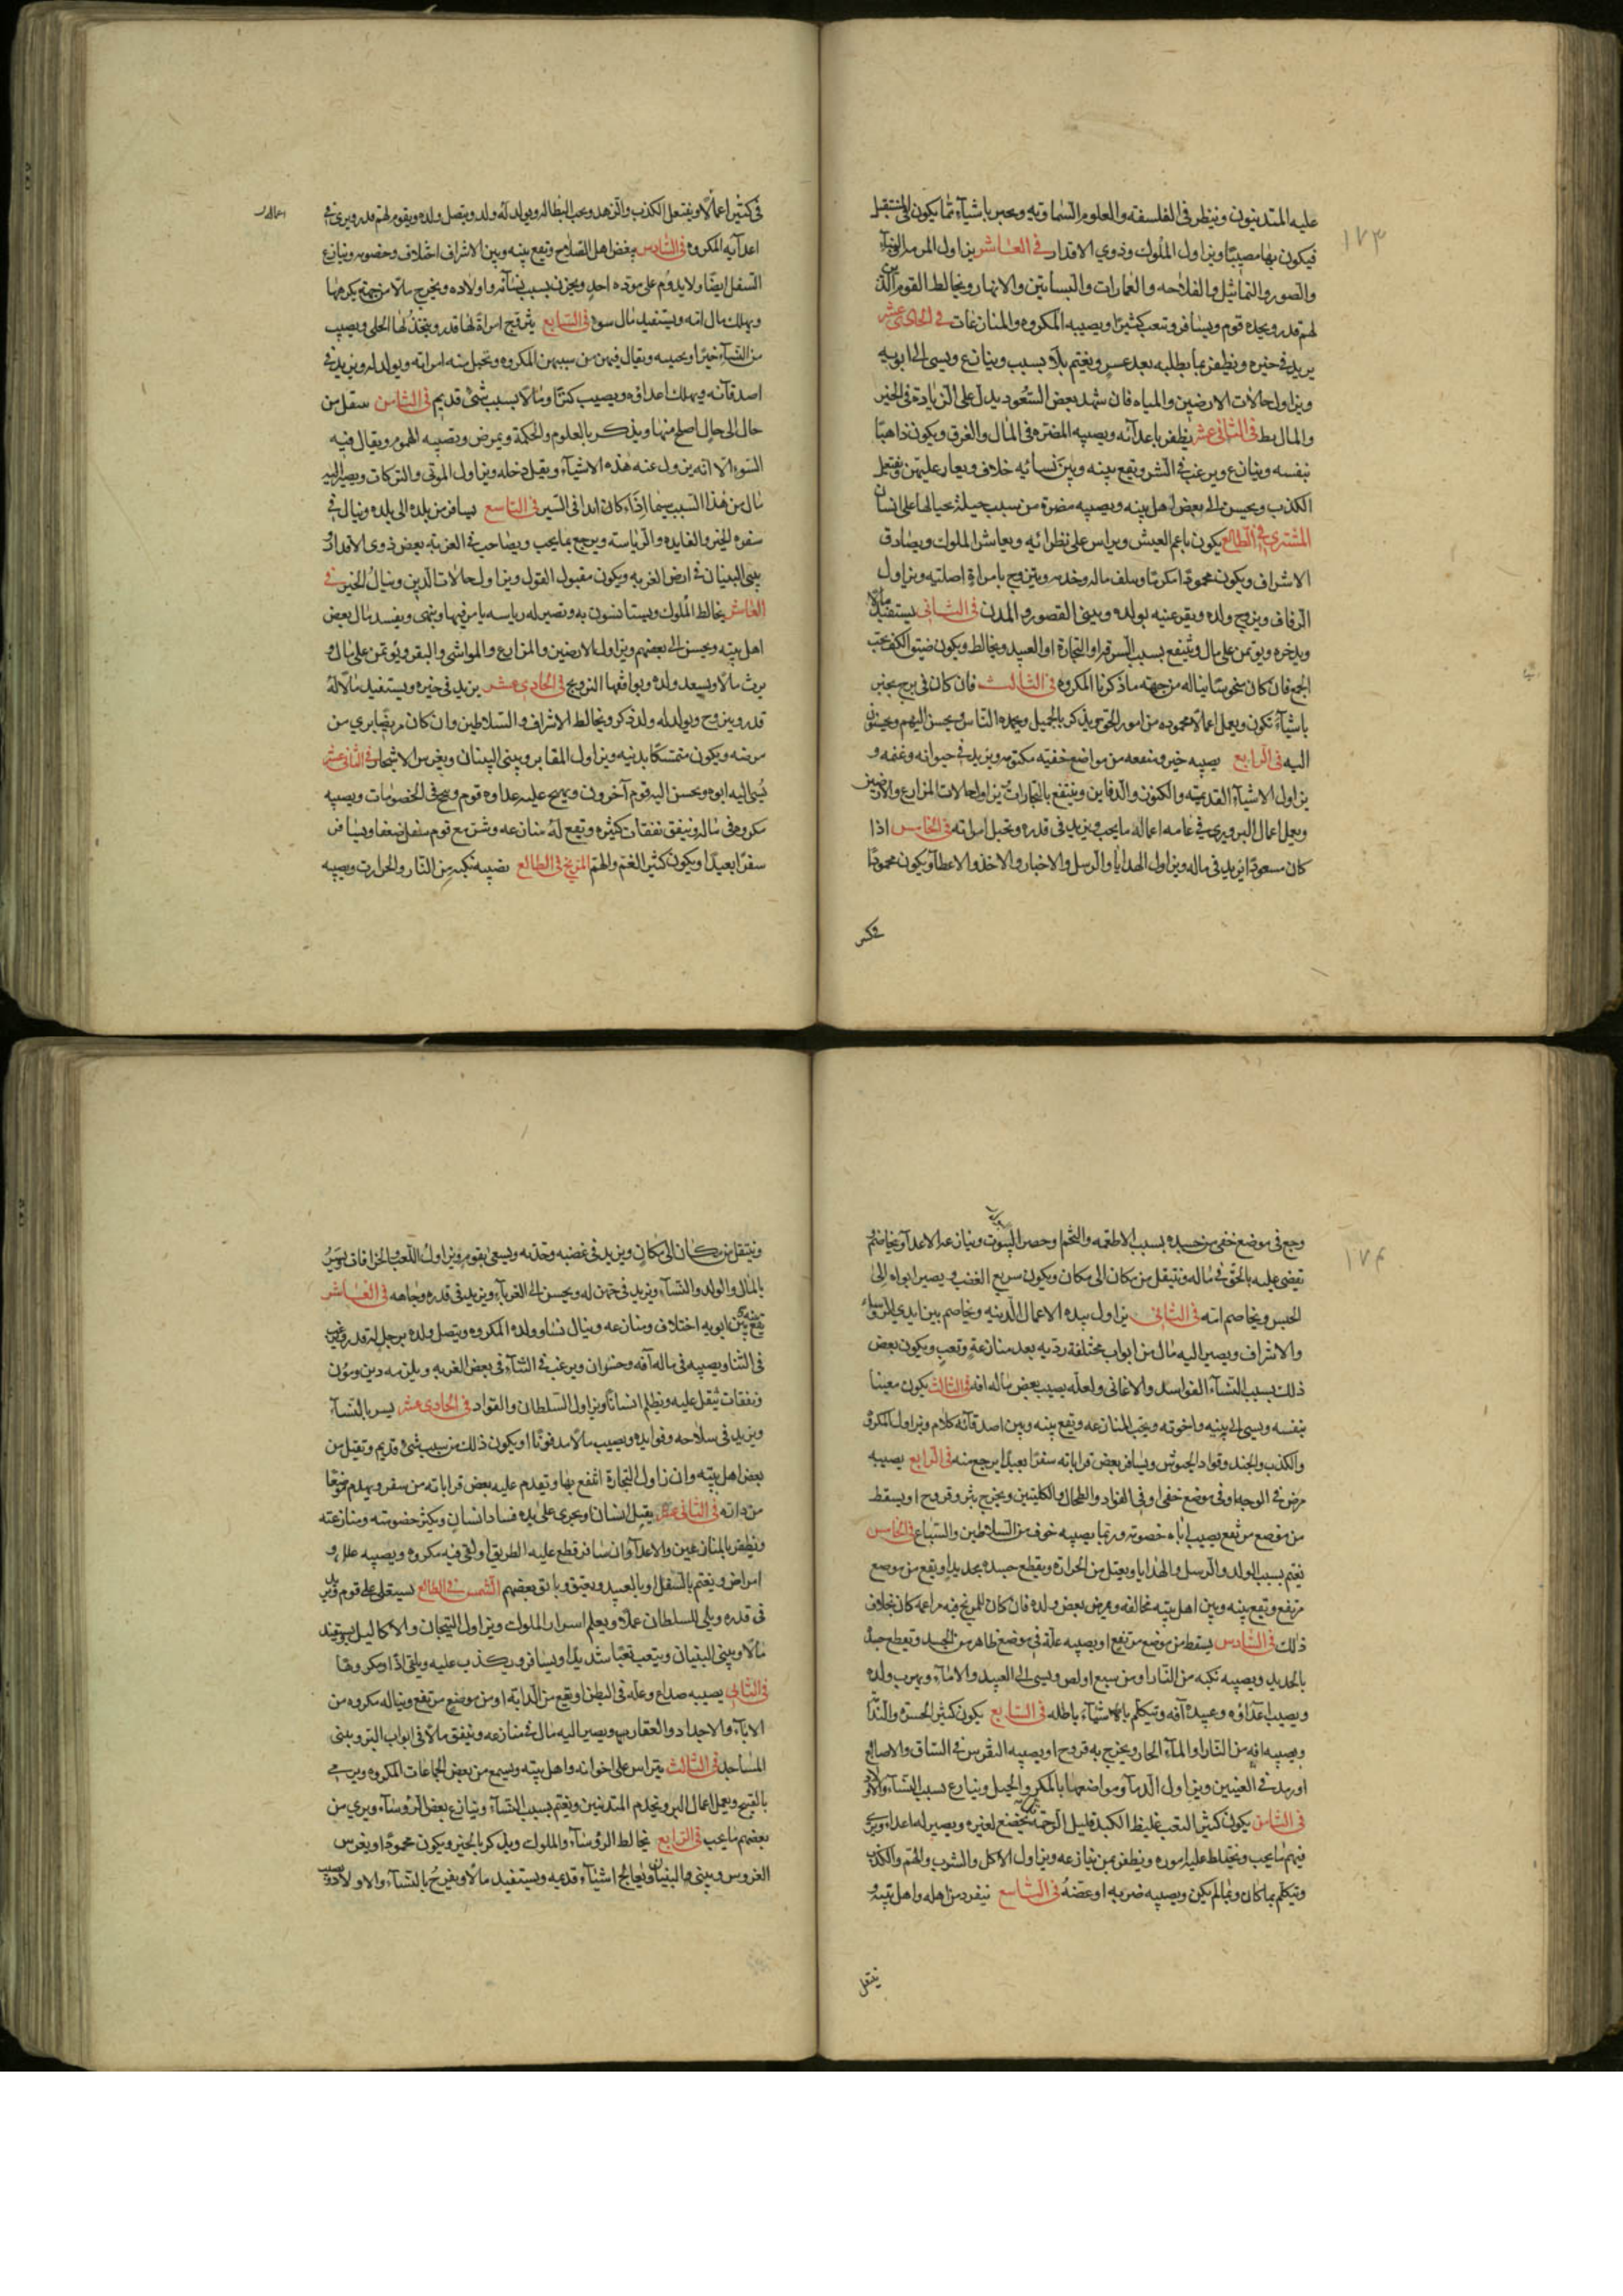 عليه المتدينون وينظر في الفلسفه والعلوم السماوية ويخبر باشيآء مما يكون في المستقبل
١٧٣
فيكون بها مصيبا ويزاول الملوك وذوي الاقدار في العاشر يزاول
والصور والتماثيل والفلاحه والعمارات والبساتين والانهار ويخالط القوم الذي
لهم قدر ويحده قوم ويسافر ويتعب كثيرا ويصيبه المكروه والمنازعات في الحادي عشر
يزيد في خيره ويظفر بما يطلبه بعد عسر ويغتم بلا سبب وينازع ويسي الى ابويه
ويزاول حالات الارضين والمياه فان شهد بعض السعود يدل على الزيادة في الخير
والمال في الثاني عشر يظفر باعدآئه ويصيبه المضره في المال والغرق ويكون ذاهبا
بنفسه وينازع ويرغب في الشر ويقع بينه وبين نسائه خلاف ويغار عليهن ويفتعل
الكذب ويحسن الى بعض اهل بيته ويصيبه مضرة من سبب حيلة يحتالها على انسان
المشتري في الطالع يكون ناعم العيش ويراس على نظرائه ويعاشر الملوك ويصادق
الاشراف ويكون محمودا مكرما ويتلف ماله وخدمه ويتزوج بامراة اصلية ويزاول
الزفاف ويزوج ولده ويقر عينه بولده ويبني القصور والمدن في الثاني يستفيد مالا
ويدخره ويؤتمن على مال وينتفع بسبب السفر او التجارة او العبيد ويخالط ويكون ضيق الكف يحب
الجمع فان كان منحوسا يناله من جهته ما ذكرنا المكروه في الثالث فان كان في برج يخبر
باشيآء تكون ويعمل اعمالا محموده من امور الحق ويذكر بالجميل ويحمده الناس ويحسن اليهم ويحسنون
اليه في الرابع يصيبه خير ومنفعه من مواضع خفيه مكتومه ويزيد في حيوانه وغنمه و
يزاول الاشيآء القديمة والكنوز والدفاين وينتفع بالتجارات ويزاول حالات المزارع والارضين
ويعمل اعمال البر ويرى في عامه اعماله ما يحب ويزيد في قدره وتحبل امراته في الخامس اذا
كان مسعودا يزيد في ماله ويزاول الهدايا والرسل والاخبار والاخذ والاعطآ ويكون محمودا
في كثير اعمالا ويفتعل الكذب والزهد ويحب البطاله ويولد له ولد ويتصل ولده بقوم لهم قدر ويرى في
اعدآئه المكروه في السادس يبغض اهل الصلاح ويقع بينه وبين الاشراف اختلاف وخصومه وينازع
السفل ايضا ولا يدوم على موده احد ويحزن بسبب نسآئه واولاده ويخرج مالا من جهة يكرهها
ويهلك مال امه ويستفيد مال سوء في السابع يتزوج امراة لها قدر ويتخذ لها الحلى ويصيب
من النسآء خيرا ويحبسه ويقال فيهن من سببهن المكروه وتحبل منه امراته ويولد له ويزيد في
اصدقآئه ويهلك اعداؤه ويصيب كنزا ومالا بسبب شئ قديم في الثامن ينتقل من
حال الى حال اصلح منها ويذكر بالعلوم والحكمة ويمرض وتصيبه الهموم ويقال فيه
السوء الا انه يزول عنه هذه الاشيآء ويقبل دخله ويزاول الموتى والتركات ويصير اليه
مال من هذا السبب سيما اذا كان زايدا في السير في التاسع يسافر من بلده الى بلده وينال في
سفره الخير والفايده والرياسه ويرجع بما يحب ويصاحب في الغربة بعض ذوى الاقدار
يبني البنيان في ارض الغربه ويكون مقبول القول ويزاول حالات الدين وينال الخير في
العاشر يخالط الملوك ويستانسون به وتصير له رياسه يامر فيها وينهى ويفسد مال بعض
اهل بيته ويحسن الى بعضهم ويزاول الارضين والمزارع والمواشي والبقر ويؤتمن على مال و
يرث مالا ويسعد ولده ويوافقها التزويج في الحادي عشر يزيد في خيره ويستفيد مالا له
قدر ويتزوج ويولد له ولد ذكر ويخالط الاشراف والسلاطين وان كان مريضا برئ من
مرضه ويكون متمسكا بدينه ويزاول المقابر ويبني البنيان ويغرس الاشجار في الثاني عشر
يسئ اليه ابوه ويحسن اليه قوم آخرون ويهيج عليه عداوه قوم ويقع في الخصومات ويصيبه
مكروه في ماله وينفق نفقات كثيره وتقع له منازعه وشر مع قوم سفل ضعفا ويسافر
سفرا بعيدا ويكون كثير الغم والهم المريخ في الطالع تصيبه نكبه من النار والحرارت ويصيبه
وجع في موضع خفي من جسده بسبب الاطعمه والتخم وينازعه الاعدآ ويخاصم
١٧٤
يقضى عليه بالحق في ماله وينتقل من مكان الى مكان ويكون سريع الغضب ويصير ابواه الى
الحبس ويخاصم امه في الثاني يزاول بيده الاعمال الدينه ويخاصم بين ايدي الروسآء
والاشراف ويصير اليه مال من ابواب مختلفة رديه بعد منازعة وتعب ويكون بعض
ذلك بسبب النسآء الفواسد والاغاني ولعله يصيب بعض ماله افه في الثالث يكون معينا
بنفسه ويسي الى بيته واخوته ويحب المنازعه ويقع بينه وبين اصدقآئه كلام ويزاول المكروه
والكذب والجند وقواد الجيوش ويسافر بعض قراباته سفرا بعيدا يرجع منه في الرابع يصيبه
مرض في الوجه او في موضع خفي او في الفواد والطحال والكليتين ويخرج بثر وقروح او يسقط
من موضع مرتفع يصيب اباه خصومه وربما يصيبه خوف من السلاطين والسباع في الخامس
يغتم بسبب الولد والرسل والهدايا ويعتل من الحرارة ويقطع جسده بحديد او يقع من موضع
مرتفع ويقع بينه وبين اهل بيته مخالفه ويمرض بعض ولده فان كان للمريخ فيه مزاعمة كان بخلاف
ذلك في السادس يسقط من موضع مرتفع او يصيبه علة في موضع ظاهر من الجسد ويقطع جسده
بالحديد ويصيبه نكبه من النار او من سبع او لص ويسى الى العبيد والامآء ويهرب ولده
ويصيب اعداؤه وعبيده آفه ويتكلم باشيآء باطله في السابع يكون كثير الحسره والندآمه
ويصيبه افه من النار او المآء الحار ويخرج به قروح او يصيبه النقرس في الساق والاصابع
او رمد في العينين ويزاول الدمآ ومواضعها بالمكر والحيل وينازع بسبب النسآء والاولاد
في الثامن يكون كثير التعب غليظ الكبد قليل الرحمة يخضع لغيره ويصير له اعداء ويرى
فيهم ما يحب ويختلط عليه اموره ويظفر بمن ينازعه ويزاول الاكل والشرب والهم والكذب
ويتكلم بما كان وبما لم يكن ويصيبه ضربه او عضه في التاسع ينفرد من اهله واهل بيته و
ينتقل
وينتقل من مكان الى مكان ويزيد في غضبه وحدته ويسعى بقوم ويزاول اللعب والخرافات ويسر
بالمال والولد والنسآء ويزيد في ويحسن الى الغربآء ويزيد في قدره وجاهه في العاشر
يقع بين ابويه اختلاف ومنازعه وينال نساؤه وولده المكروه ويتصل ولده برجل له قدر ويرغب
في الثنا ويصيبه في ماله آفه وخسران ويرغب في النسآء في بعض الغربه ويلزمه دين ومؤن
ونفقات تثقل عليه ويظلم انسانا ويزاول السلطان والقواد في الحادي عشر يسر بالنسآء
ويزيد في سلاحه وفوايده ويصيب مالا مدفونا او يكون ذلك من سبب شئ قديم وينتقل من
بعض اهل بيته وان زاول التجارة انتفع بها ويقدم عليه بعض قراباته من سفر ويهدم موضعا
من داره في الثاني عشر يقتل انسان او يجرى على يده فساد انسان ويكثر خصومته ومنازعته
ويظفر بالمنازعين والاعدآ وان سافر قطع عليه الطريق او لقي فيه مكروه ويصيبه علل و
امراض ويغتم بالسفل او بالعبيد ويعتق ويابق بعضهم الشمس في الطالع يستعلى على قوم ويزيد
في قدره ويلى للسلطان عملا ويعلم اسرار الملوك ويزاول التيجان والاكاليل ويستفيد
مالا ويبني البنيان ويتعب تعبا شديدا ويسافر ويكذب عليه ويلقى اذا ومكروها
في الثاني يصيبه صداع وعله في البطن او يقع من الدابة او من موضع مرتفع ويناله مكروه من
الابآء والاجداد والعقارب ويصير اليه مال في منازعه وينفق مالا في ابواب البر ويبني
المساجد في الثالث يتراس على اخوانه واهل بيته ويسمع من بعض الجماعات المكروه ويرمى
بالقبيح ويعمل اعمال البر ويخدم المتدينين ويغتم بسبب النسآء وينازع بعض الرؤسآء ويرى من
بعضهم ما يحب في الرابع يخالط الرؤسآء والملوك ويذكر بالخير ويكون محمودا ويغرس
الغروس ويبني البنيان ويعالج اشيآء قديمه ويستفيد مالا ويفرح بالنسآء والاولاد